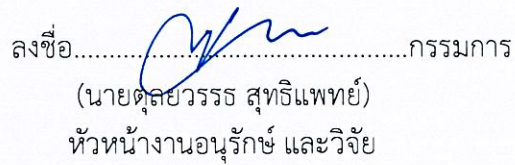 ลงชื่อ..................................................กรรมการ
(นายตุลยวรรธ สุทธิแพทย์)
หัวหน้างานอนุรักษ์ และวิจัย